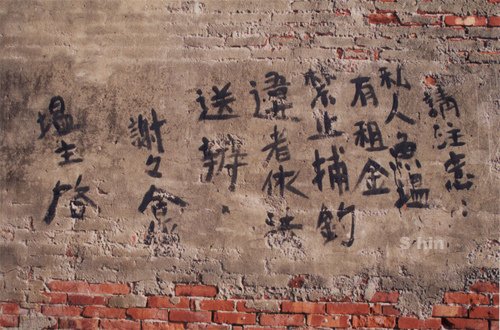 請注意:
私人魚塭
有租金
禁止捕釣
違者依法
送辦.
謝々
塭主啓
Shin